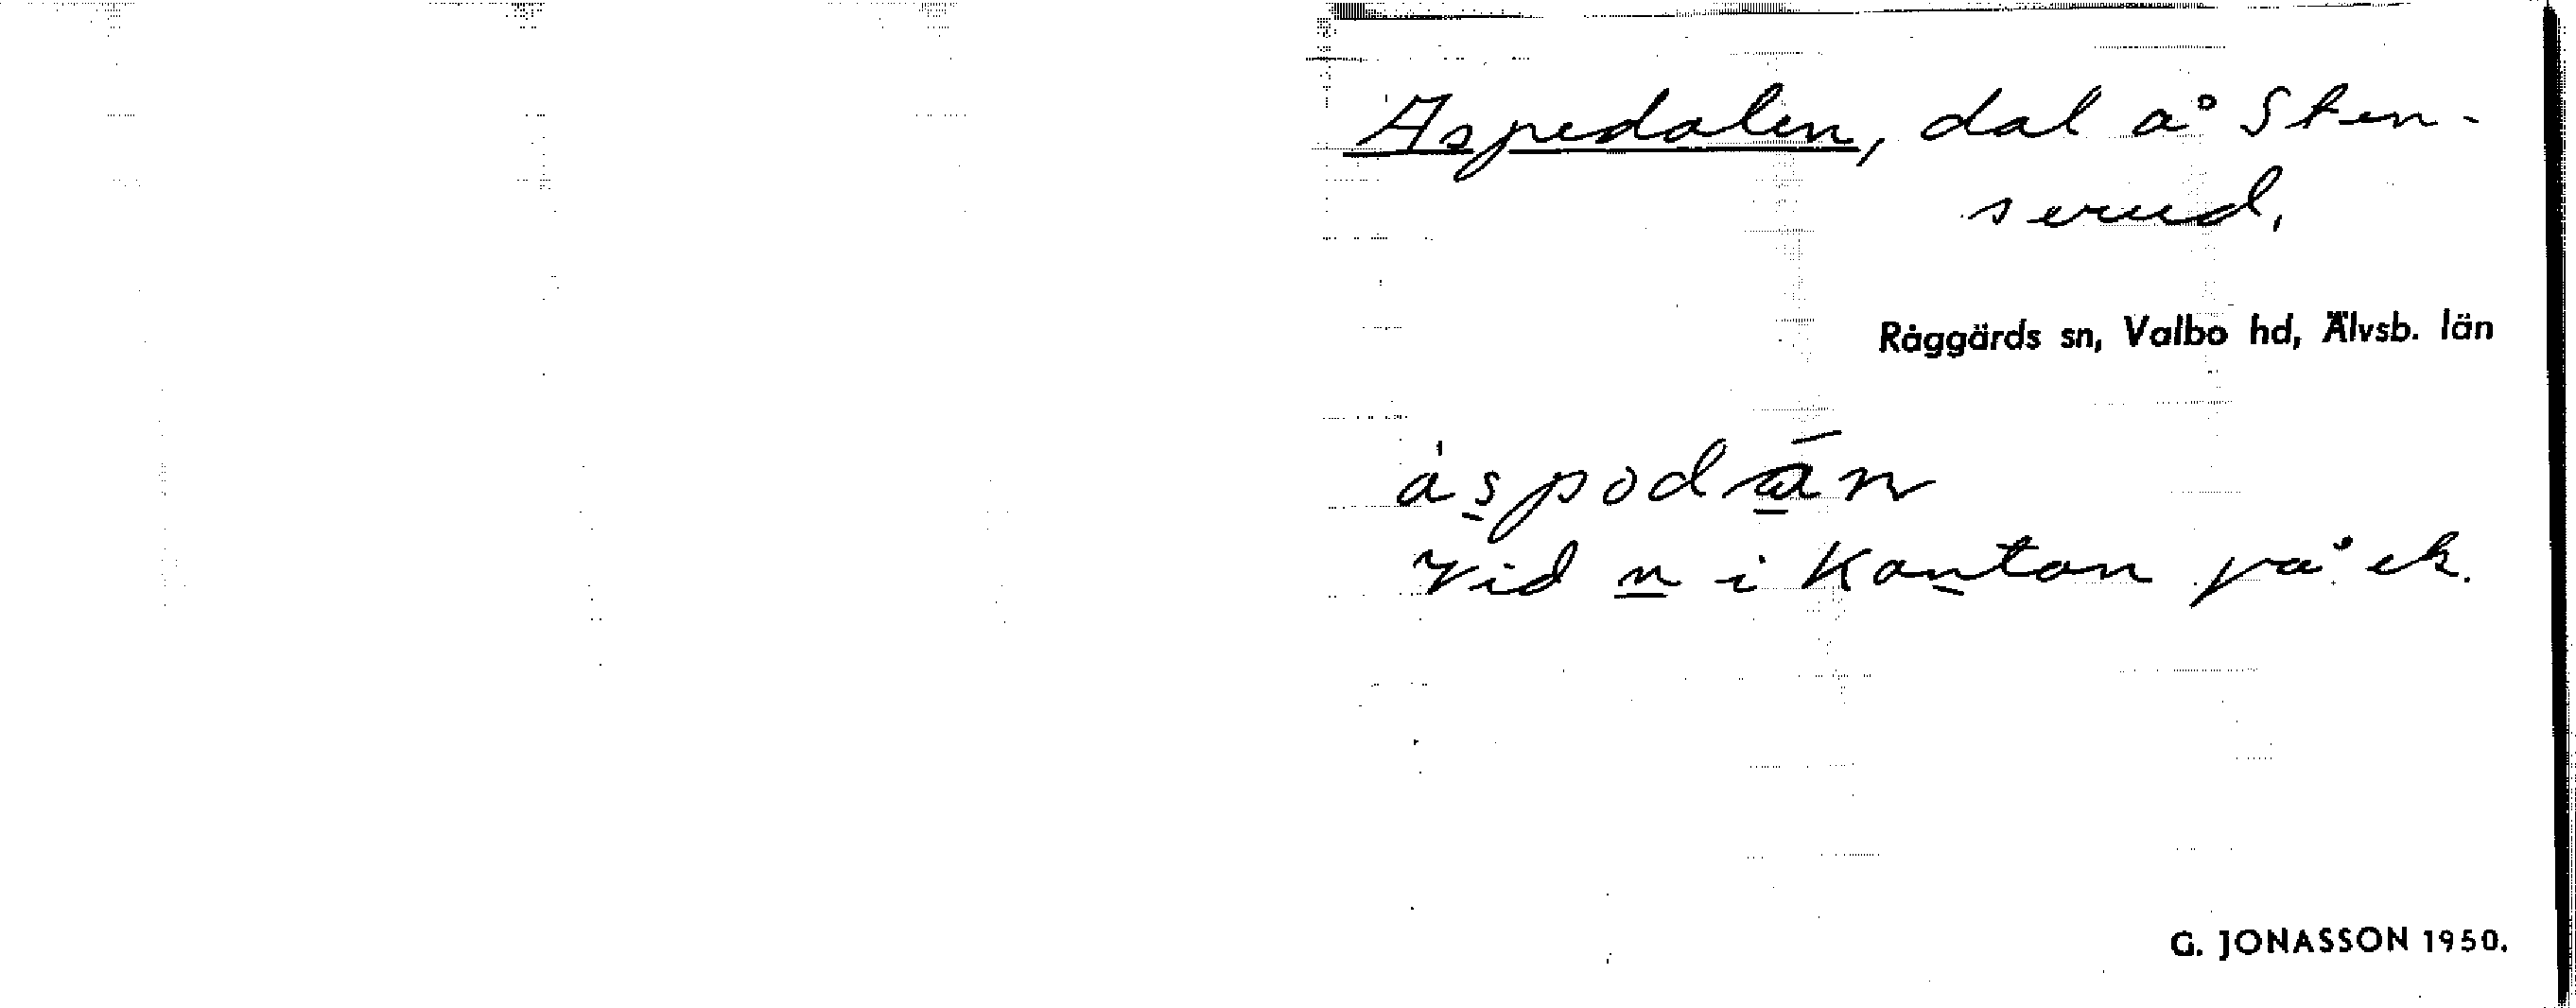 Aspedalen, dal å Sten-
serud.
Råggärds sn, Valbo hd, Älvsb. län
Vid n i Kanton på ek.
G. JONASSON 1950.